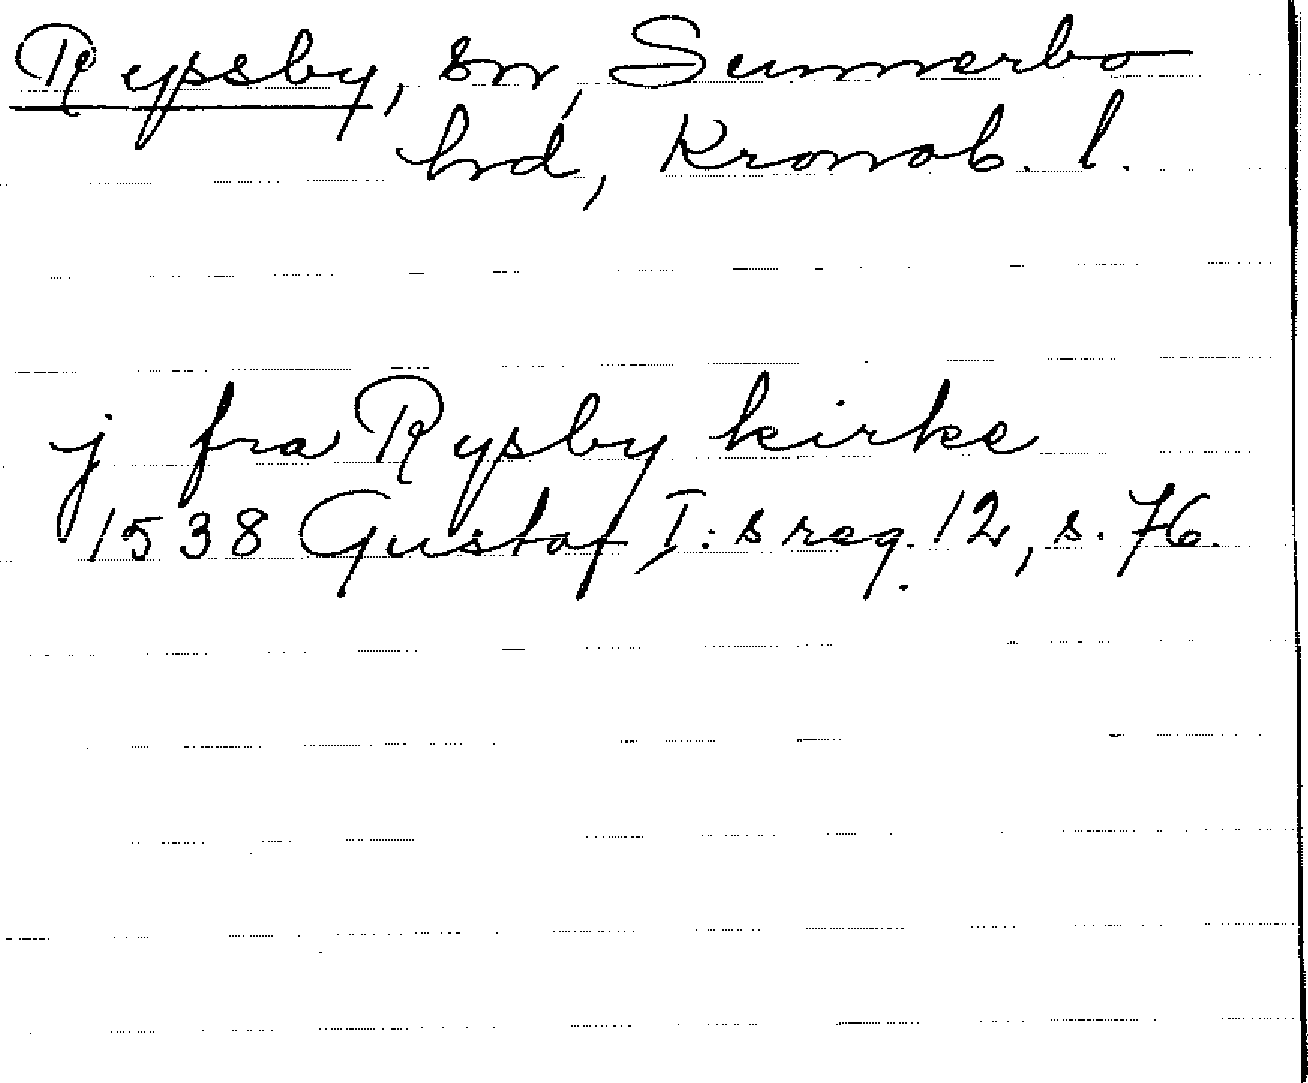 Rypsby, sn, Sunnerbo
hd, Kronob. l.
j fra Rypsby kirke
1538 Gustaf I:s reg. 12, s. 76.